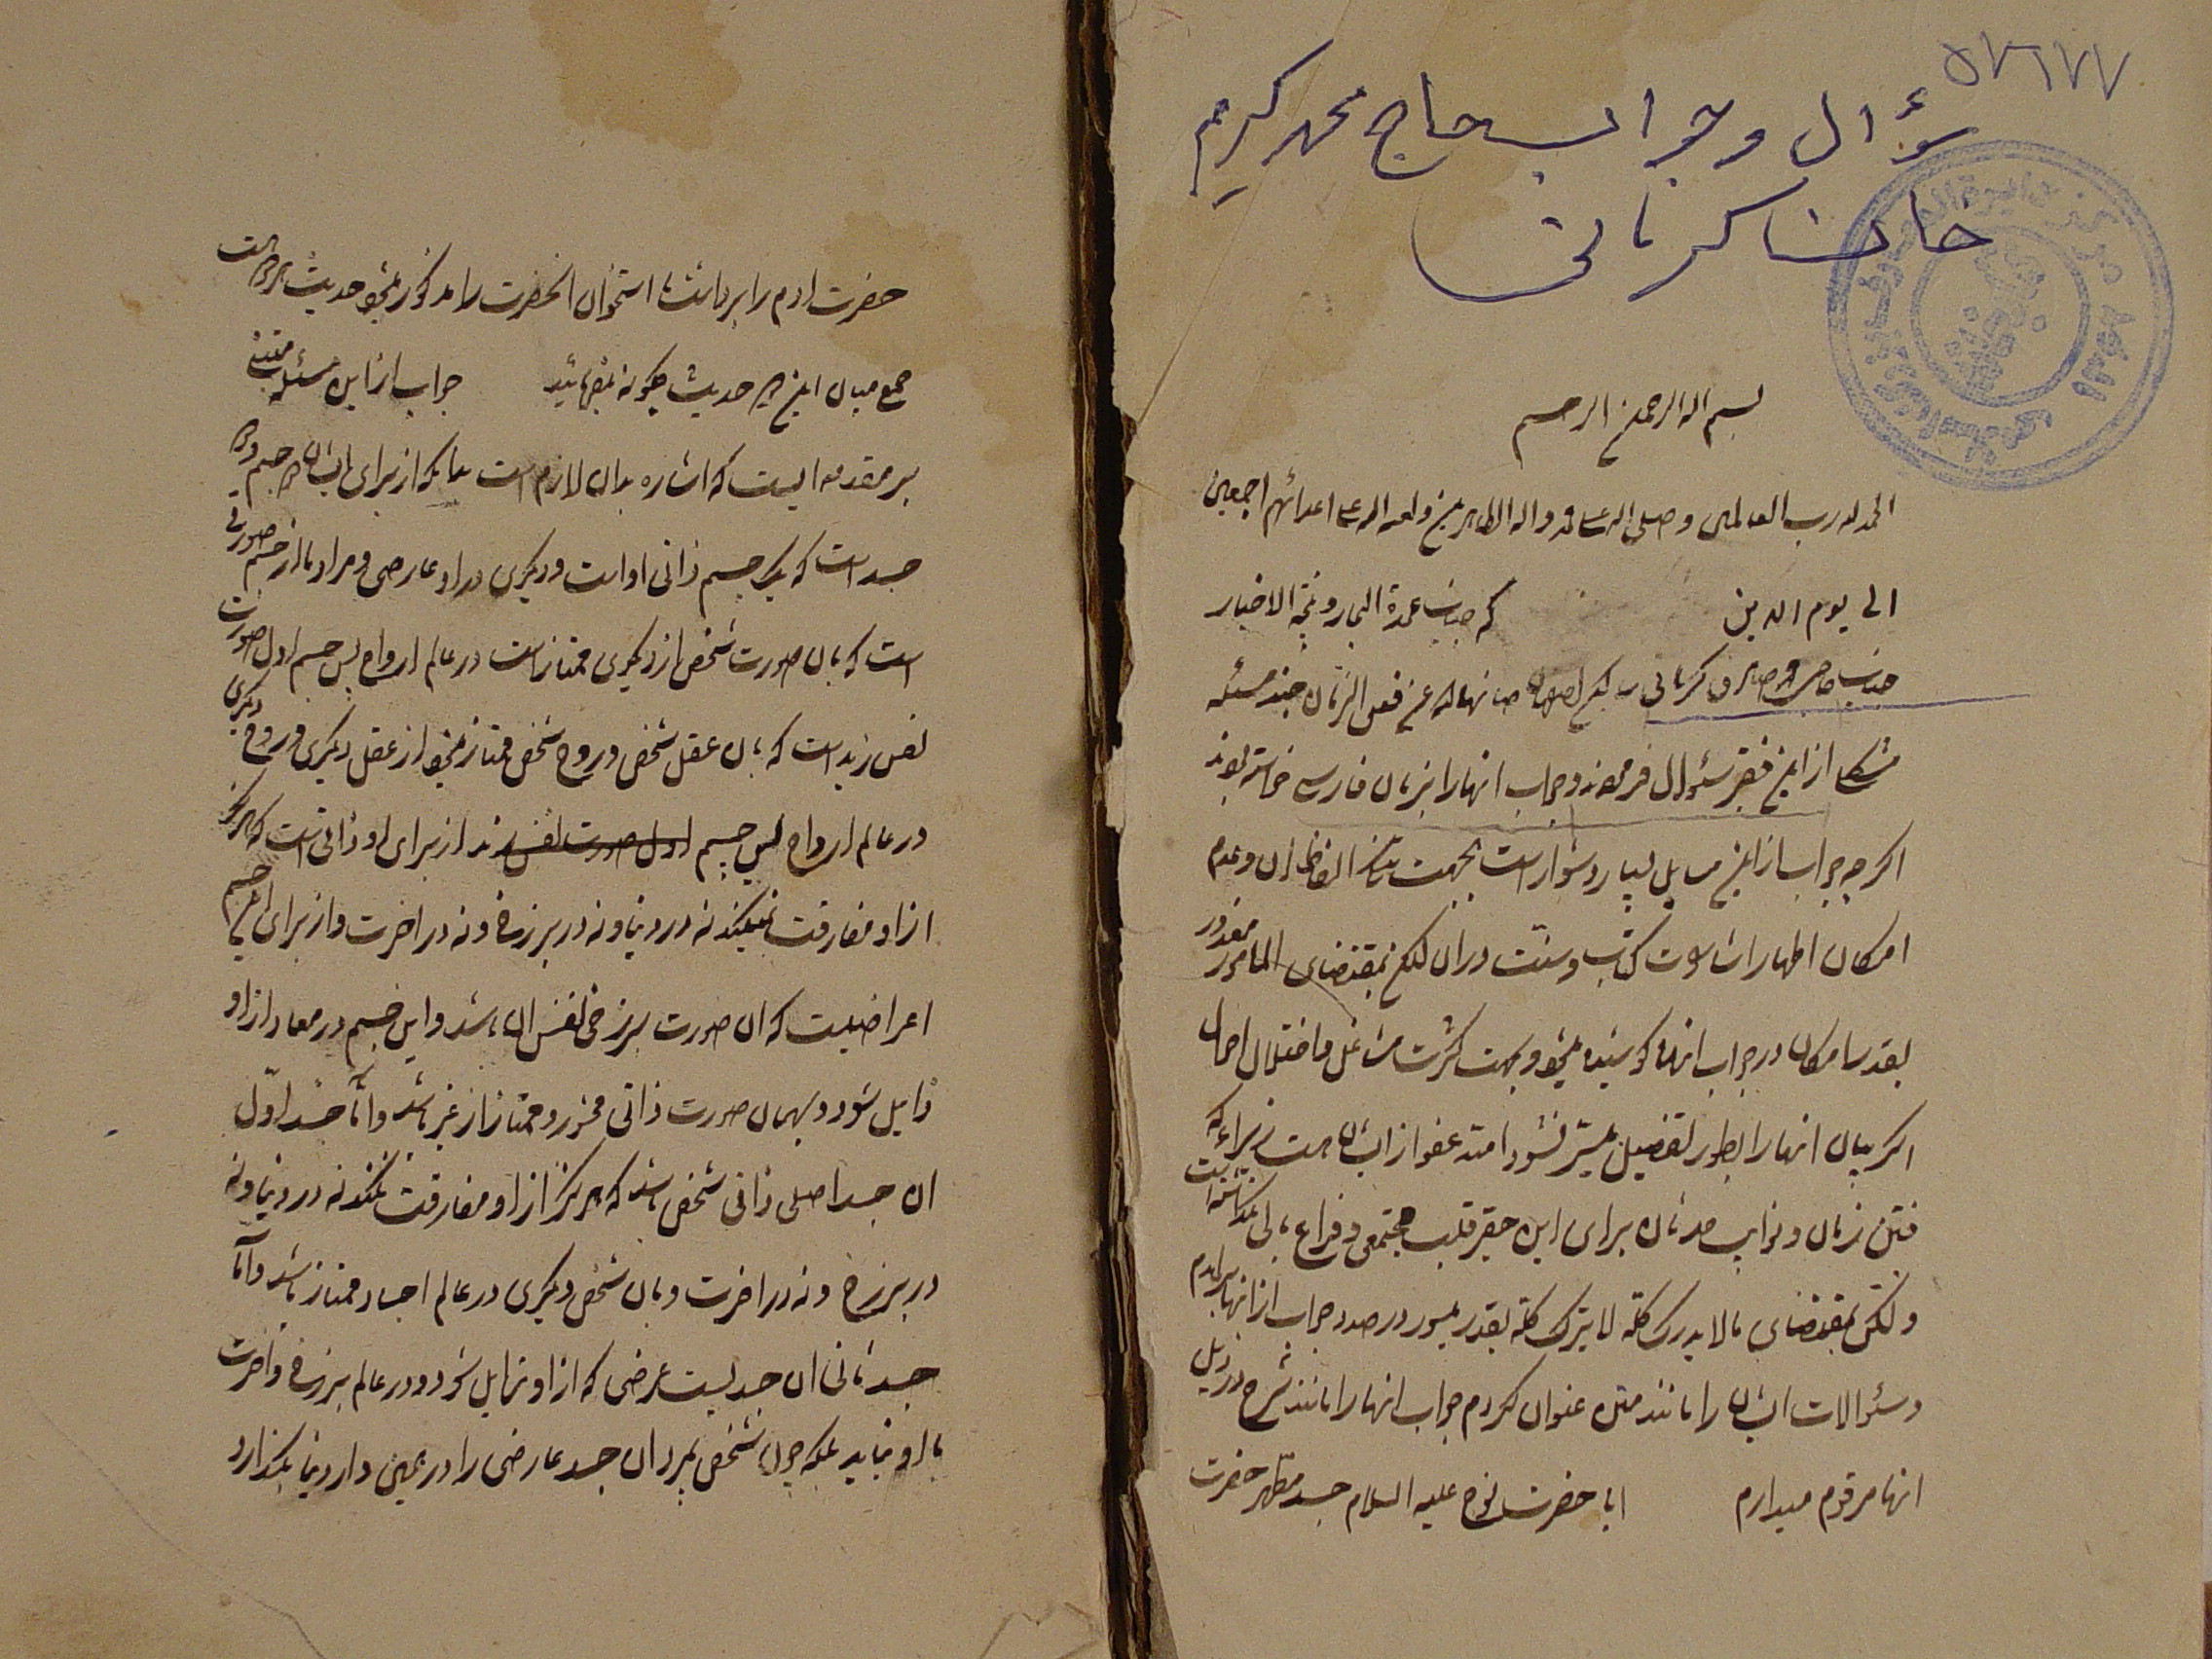 ۵۷۱۷۷
سؤال و جواب حاج محمد کریم
خان کرمانی
بسم الله الرحمن الرحیم
الحمد لله رب العالمین و صلی الله علی محمد و اله الطاهرین و لعنه الله علی اعدائهم اجمعین
الی یوم الدین که جناب عمدة التجار و نخبة الاخیار
جناب کرمانی صانها الله عن الزمان چند مسئله
مشکل از این فقیر سئوال فرمودند و جواب انها را بزبان فارسی خواسته بودند
اگرچه جواب از این مسایل بسیار دشوار است بجهت الفاظ ان و عدم
امکان اظهار کتاب و سنت در ان لکن بمقتضای المامور معذور
بقدر امکان در جواب انها کوشیده میشود و بجهت کثرت مشاغل و اختلال احوال
اگر بیان انها را بطور تفصیل میسر نشود امید عفو از ایشان است زیرا که
فتن زمان و نوایب حدثان برای این حقیر قلب مجتمعی و فراغ بالی نگذاشته است
ولکن بمقتضای مالا یدرک کله لا یترک کله بقدر میسور در صدد جواب از انها برامدم
و سئوالات ایشان را مانند متن عنوان کردم جواب انها را مانند شرح در ذیل
انها مرقوم میدارم ایا حضرت نوح علیه السلام جسد مطهر حضرت
حضرت ادم را برداشت یا استخوان انحضرت را مذکور میشود حدیث هر دو است
جمع میان این دو حدیث چگونه میفرمائید جواب از این مسئله مبتنی
بر مقدمه ایست که اشاره بدان لازم است بدانکه از برای انسان دو جسم و دو
جسد است که یک جسم ذاتی او است و دیگری در او عارضی و مراد ما از جسم صورتی
است که بان صورت شخص از دیگری ممتاز است در عالم ارواح پس جسم اول صورت
نفس زید است که بان عقل شخص و روح شخص ممتاز میشود از عقل دیگری و روح دیگری
در عالم ارواح پس جسم اول صورت نفس زید از برای او ذاتی است که هرگز
از او مفارقت نمیکند نه در دنیا و نه در برزخ و نه در اخرت و از برای این جسم
اعراضیست که ان صورت برزخی نفس ان باشد و این جسم در معاد از او
زایل شود و بهمان صورت ذاتی محشور و ممتاز از غیر باشد و اما جسد اول
ان جسد اصلی ذاتی شخص باشد که هرگز از او مفارقت نکند نه در دنیا و نه
در برزخ و نه در اخرت و بان شخص دیگری در عالم اجساد ممتاز باشد و اما
جسد ثانی ان جسدیست عرضی که از او زایل شود و در عالم برزخ و اخرت
با او نیاید بلکه چون شخص بمرد ان جسد عارضی را در همین دار دنیا بگذارد